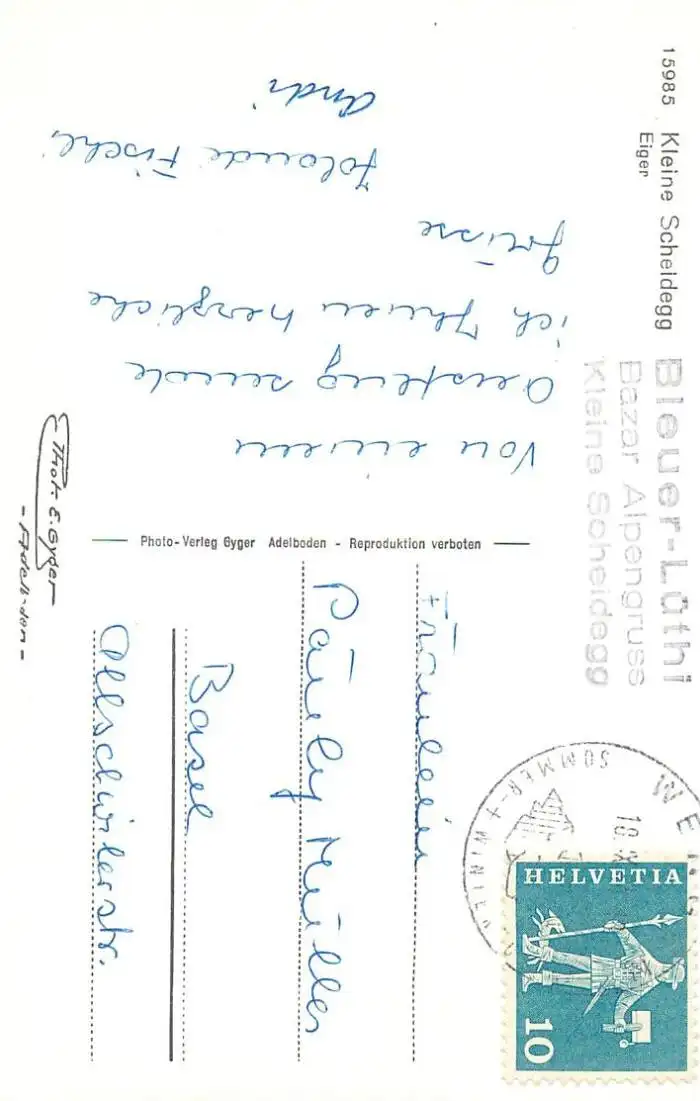 15985 Kleine Scheidegg
Eiger
Bleuer-Lüthi
Bazar Alpengruss
Kleine Scheidegg
Von einem
Ausflug sende
ich Ihnen herzliche
Grüsse
Jolanda Fischli
Andi
Photo-Verlag Gyger Adelboden - Reproduktion verboten
- Phot. E. Gyger -
- Adelboden -
Fräulein
Pauly Müller
Basel
Allschwilerstr.
WE
SOMMER- + WINTE
HELVETIA
10